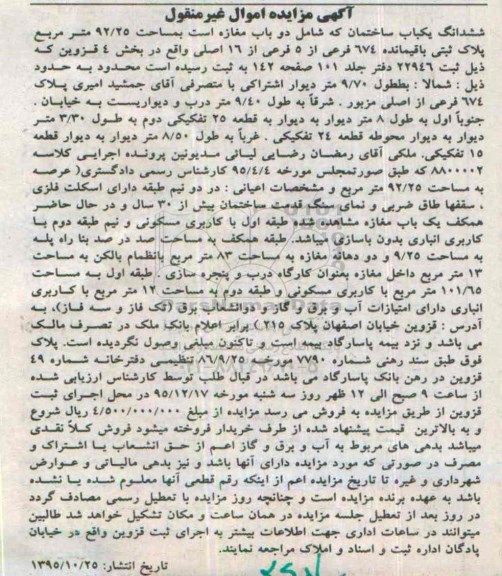 آگهی مزایده اموال غیرمنقول
ششدانگ یکباب ساختمان که شامل دو باب مغازه است بمساحت ۹۲/۲۵ متر مربع
پلاک ثبتی باقیمانده ۶۷۴ فرعی از ۵ فرعی از ۱۶ اصلی واقع در بخش ۴ قزوین که
ذیل ثبت ۲۲۹۴۶ دفتر جلد ۱۰۱ صفحه ۱۴۲ به ثبت رسیده است محدود به حدود
ذیل : شمالا : بطول ۹/۷۰ متر دیوار اشتراکی با متصرفی آقای جمشید امیری پلاک
۶۷۴ فرعی از اصلی مزبور . شرقاً به طول ۹/۴۰ متر درب و دیواریست به خیابان .
جنوباً اول به طول ۸ متر دیوار به دیوار به قطعه ۲۵ تفکیکی دوم به طول ۳/۳۰ متر
دیوار به دیوار محوطه قطعه ۲۴ تفکیکی . غرباً به طول ۸/۵۰ متر دیوار به دیوار قطعه
۱۵ تفکیکی. ملکی آقای رمضان رضایی لیائی مدیونین پرونده اجرایی کلاسه
۸۸۰۰۰۰۲ که طبق صورتمجلس مورخه ۹۵/۴/۴ کارشناس رسمی دادگستری( عرصه
به مساحت ۹۲/۲۵ متر مربع و مشخصات اعیانی : در دو نیم طبقه دارای اسکلت فلزی
، سقفها طاق ضربی و نمای سنگ قدمت ساختمان بیش از ۳۰ سال و در حال حاضر
همکف یک باب مغازه مشاهده شده طبقه اول با کاربری مسکونی و نیم طبقه دوم با
کاربری انباری بدون بازسازی میباشد. طبقه همکف به مساحت صد در صد بنا راه پله
به مساحت ۹/۲۵ و دو دهانه مغازه به مساحت ۸۳ متر مربع بانظمام بالکن به مساحت
۱۳ متر مربع داخل مغازه بعنوان کارگاه درب و پنجره سازی . طبقه اول به مساحت
۱۰۱/۶۵ متر مربع با کاربری مسکونی و طبقه دوم به مساحت ۱۲ متر مربع با کاربری
انباری دارای امتیازات آب و برق و گاز و دوانشعاب برق (تک فاز و سه فاز)، به
آدرس : قزوین خیابان اصفهان پلاک ۲۱۵ ) برابر اعلام بانک ملک در تصرف مالک
می باشد و نزد بیمه پاسارگاد بیمه است و تاکنون مبلغی وصول نگردیده است. پلاک
فوق طبق سند رهنی شماره ۷۷۹۰ مورخه ۸۶/۹/۲۵ تنظیمی دفترخانه شماره ۴۹
قزوین در رهن بانک پاسارگاد می باشد در قبال طلب توسط کارشناس ارزیابی شده
از ساعت ۹ صبح الی ۱۲ ظهر روز سه شنبه مورخه ۹۵/۱۲/۱۷ در محل اجرای ثبت
قزوین از طریق مزایده به فروش می رسد مزایده از مبلغ ۴/۵۰۰/۰۰۰/۰۰۰ ریال شروع
و به بالاترین قیمت پیشنهاد شده از طرف خریدار فروخته میشود فروش کلاً نقدی
میباشد بدهی های مربوط به آب و برق و گاز اعم از حق انشعاب یا اشتراک و
مصرف در صورتی که مورد مزایده دارای آنها باشد و نیز بدهی مالیاتی و عوارض
شهرداری و غیره تا تاریخ مزایده اعم از اینکه رقم قطعی آنها معلوم شده یا نشده
باشد به عهده برنده مزایده است و چنانچه روز مزایده با تعطیل رسمی مصادف گردد
در روز بعد از تعطیل جلسه مزایده در همان ساعت و مکان تشکیل خواهد شد طالبین
میتوانند در ساعات اداری جهت اطلاعات بیشتر به اجرای ثبت قزوین واقع در خیابان
پادگان اداره ثبت و اسناد و املاک مراجعه نمایند.
تاریخ انتشار: ۱۳۹۵/۱۰/۲۵